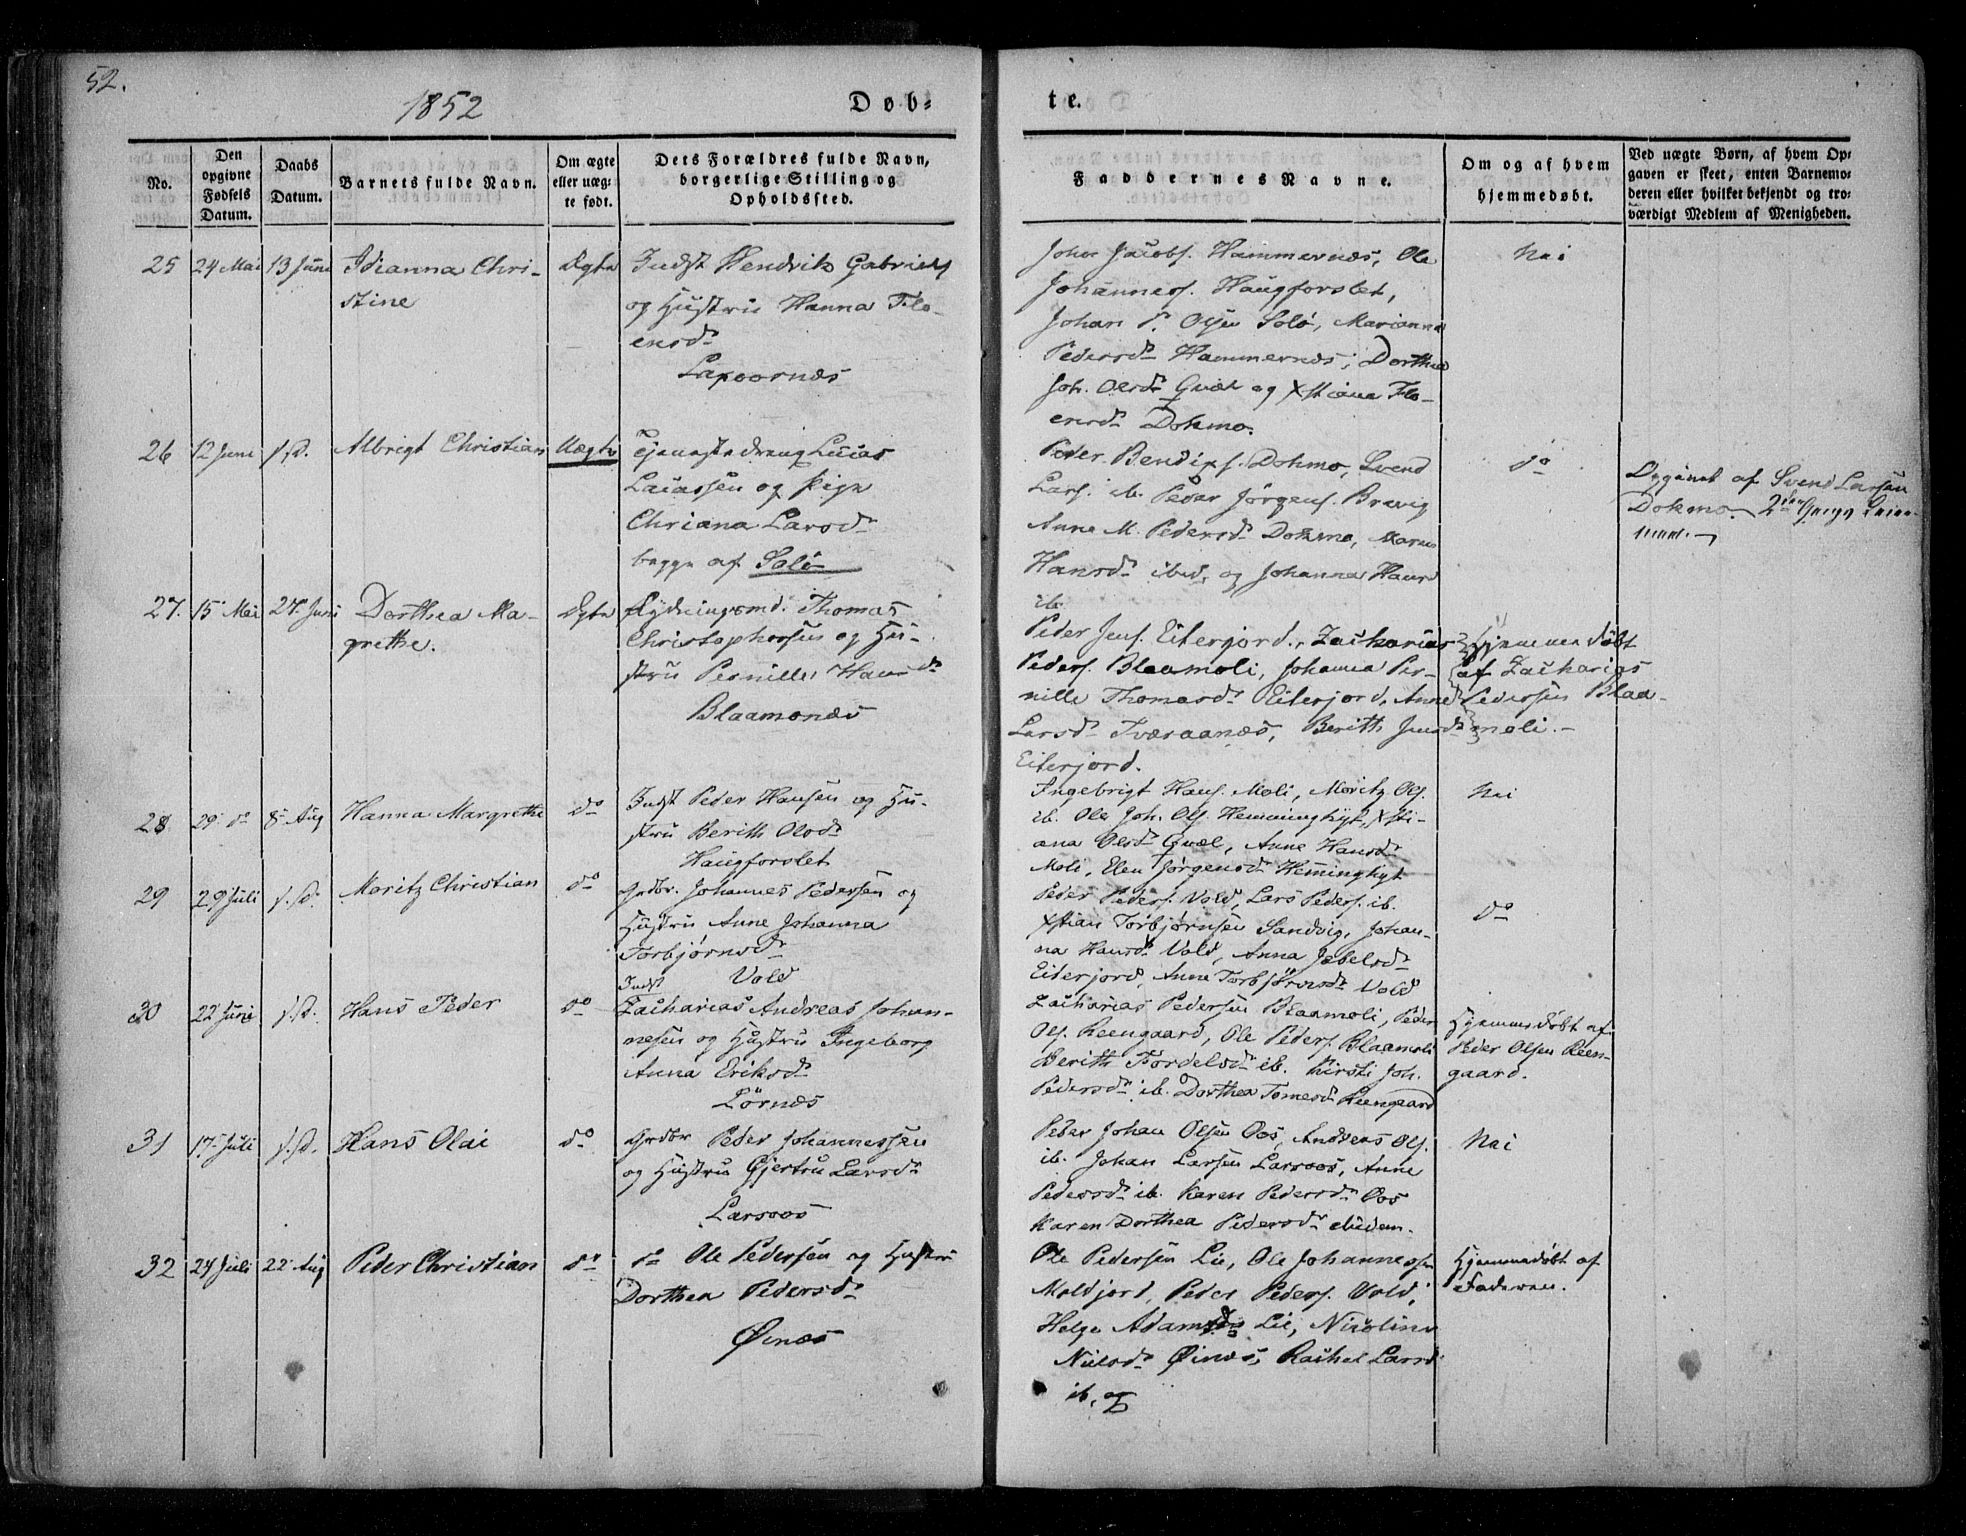 52.
1852
Døb-
te.
No.
Den opgivne Fødsels Datum.
Daabs Datum.
Barnets fulde Navn.
Om ægte eller uæg-te født.
Dets Forældres fulde Navn,
borgerlige Stilling og
Opholdssted.
Faddernes Navne.
Om og af hvem
hjemmedøbt.
Ved uægte Børn, af hvem Op-
gaven er skeet, enten Barnemo-
deren eller hvilket bekjendt og tro-
værdigt Medlem af Menigheden.
25 24 Mai 13 Juni Idianna Chri-
stine
Ægte
Indst Hendrik Gabriels
og Hustru Hanna Flo-
ensd
Laxoornæs
Johan Jacobs. Hammernæs, Ole
Johannes. Haugforslet,
Johan P. Olsen Solø, Marianna
Pedersd Hammernæs, Dorthea
Joh. Olsd Qvæl og Xstiana Flo-
ensd Dokmo.
Nei
26 12 Juni s.D. Albrigt Christian
Uægte
Tjenestedreng Lucas
Lucassen og Pige
Chriana Larsd
begge af Solø
Peder Bendixs. Dokmo, Svend
Lars. ib. Peder Jørgens. Bravig
Anne M. Pedersd Dokmo, Maren
Hansd ibid, og Johanna Hansd
ib.
do
Opgivet af Svend Larsen
Dokmo. 2den Gang Leier-
maal.
27. 15 Mai 27 Juni Dorthea Ma-
grethe.
Ægte
Rydningsmd. Thomas
Christophersen og Hu-
stru Pernille Hansd
Blaamonæs
Peder Jens. Eiterjord, Zacharias
Peders. Blaamoli, Johanna Per-
nille Thomasd Eiterjord, Anne
Larsd Tværaanæs, Berith Jensd
Eiterjord.
Hjemmedøbt
af Zacharias
Pedersen Blaa-
moli.
28 29 do 8 Aug Hanna Margrethe
do
Indst Peder Hansen og Hu-
stru Berith Olsd
Haugforslet
Ingebrigt Hans. Moli, Moritz Ols.
ib. Ole Joh. Ols. Hemminghyt, Xsti-
ana Olsd Qvæl, Anne Hansd
Moli, Elen Jørgensd Heminghyt
Nei
29 29 Juli s.D. Moritz Christian
do
Grdbr. Johannes Pedersen og
Hustru Anne Johanna
Torbjørnsd
Vold
Peder Peders. Vold, Lars Peders. ib.
Xstian Torbjørnsen Sandvig, Johan-
na Hansd Vold, Anna Jebelsd
Eiterjord, Anne Torbjørnsd Vold
do
30 22 Juni s.D. Hans Peder
do
Indst
Zacharias Andreas Johan-
nesen og Hustru Ingeborg
Anna Eriksd
Lørnæs
Zacharias Pedersen Blaamoli, Peder
Ols. Reengaard, Ole Peders. Blaamoli
Berith Fordelsd ib. Kirsti Joh.
Pedersd ib. Dorthea Tomesd Reengaard
Hjemmedøbt af
Peder Olsen Reen-
gaard.
31 17 Juli s.D. Hans Olai
do
Grdbr Peder Johannessen
og Hustru Gjertru Larsd
Larsoos
Peder Johan Olsen Oos, Andreas Ols.
ib. Johan Larsen Larsoos, Anne
Pedersd ib. Karen Pedersd Oos
Karen Dorthea Pedersd ibidem.
Nei
32 24 Juli 22 Aug Peder Christian
do
do Ole Pedersen og Hustru
Dorthea Pedersd
Øinæs
Ole Pedersen Lie, Ole Johannessen
Moldjord, Peder Peders. Vold,
Helge Lie, Nicoline
Nielsd Øinæs, Rachel Larsd
ib. og
Hjemmedøbt af
Faderen.